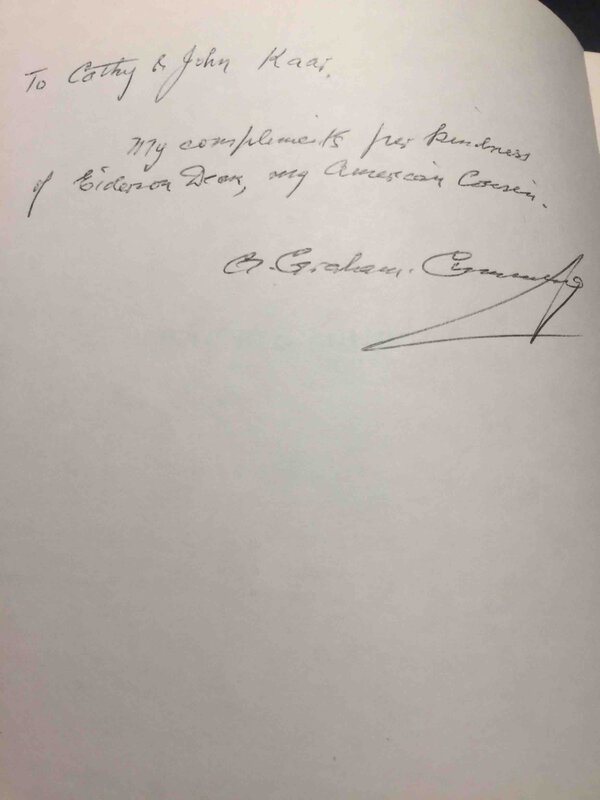 To Cathy & John Kaar.
My compliments per kindness
of Eiderson Dean, my American Cousin.
G. Graham-Cumming